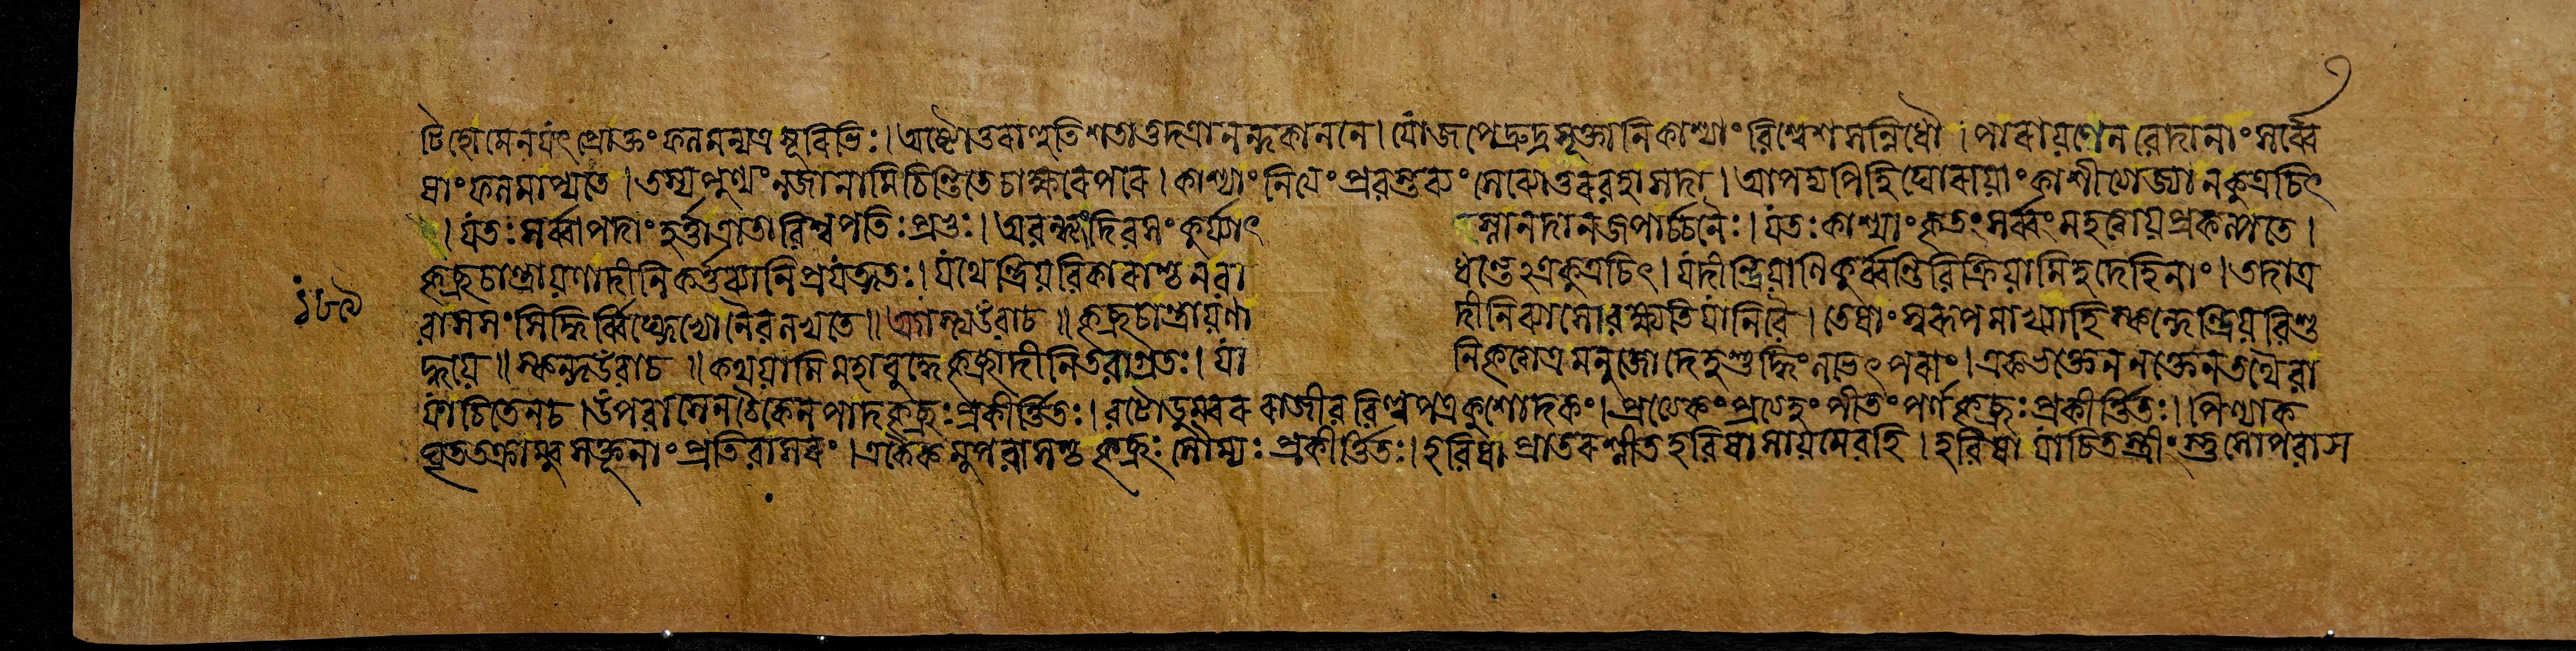 টিহোমেনযৎপ্রোক্তংফলমন্যত্রসূরিভিঃ। অষ্টোত্তরাহুতিশতাত্তদত্রানন্দকাননে। যোজপেদ্রুদ্রসূক্তানিকাশ্যাংবিশ্বেশসন্নিধৌ। পারায়ণেনবেদানাংসর্ব্বে
ষাংফলমাপ্যতে। তস্যপুণ্যংনজানামিচিন্তিতেচাক্ষরেপরে। কাশ্যাংনিত্যংপ্রবস্তব্যংসেব্যোত্তরবহাসদা। আপদ্যপিহিঘোরায়াংকাশীত্যাজ্যানকুত্রচিৎ
। যতঃসর্ব্বাপদাংহর্ত্তাত্রাতাবিশ্বপতিঃপ্রভুঃ। অবন্ধ্যংদিবসংকুর্য্যাৎ স্নানদানজপার্চ্চনৈঃ। যতঃকাশ্যাংকৃতংসর্ব্বংমহত্ত্বায়প্রকল্পতে।
কৃচ্ছ্রচান্দ্রায়ণাদীনিকর্ত্তব্যানিপ্রযত্নতঃ। যথেন্দ্রিয়বিকারাশ্চনবা ধন্তেঽত্রকুত্রচিৎ। যদীন্দ্রিয়াণিকুর্ব্বন্তিবিক্রিয়ামিহদেহিনাং। তদাত্র
১৮৯
বাসসংসিদ্ধির্ব্বিঘ্নেভ্যোনৈবলভ্যতে॥ অগস্ত্যউবাচ॥ কৃচ্ছ্রচান্দ্রায়ণা দীনিব্যাসোবক্ষ্যতিযানিবৈ। তেষাংস্বরূপমাখ্যাহিস্কন্দেন্দ্রিয়বিশু
দ্ধয়ে॥ স্কন্দউবাচ॥ কথয়ামিমহাবুদ্ধেকৃচ্ছ্রাদীনিতবাগ্রতঃ। যা নিকৃত্বাত্রমনুজোদেহশুদ্ধিংলভেৎপরাং। একভক্তেননক্তেনতথৈবা
যাচিতেনচ। উপবাসেনচৈকেনপাদকৃচ্ছ্রঃপ্রকীর্ত্তিতঃ। বটোডুম্বররাজীববিল্বপত্রকুশোদকং। প্রত্যেকংপ্রত্যহংপীতংপর্ণকৃচ্ছ্রঃপ্রকীর্ত্তিতঃ। পিণ্যাক
ঘৃততক্রাম্বুসক্তূনাংপ্রতিবাসরং। একৈকমুপবাসশ্চকৃচ্ছ্রঃসৌম্যঃপ্রকীর্ত্তিতঃ। হবিষাপ্রাতরশ্নীতহবিষাসায়মেবহি। হবিষাযাচিতংত্রীংস্তুসোপবাস